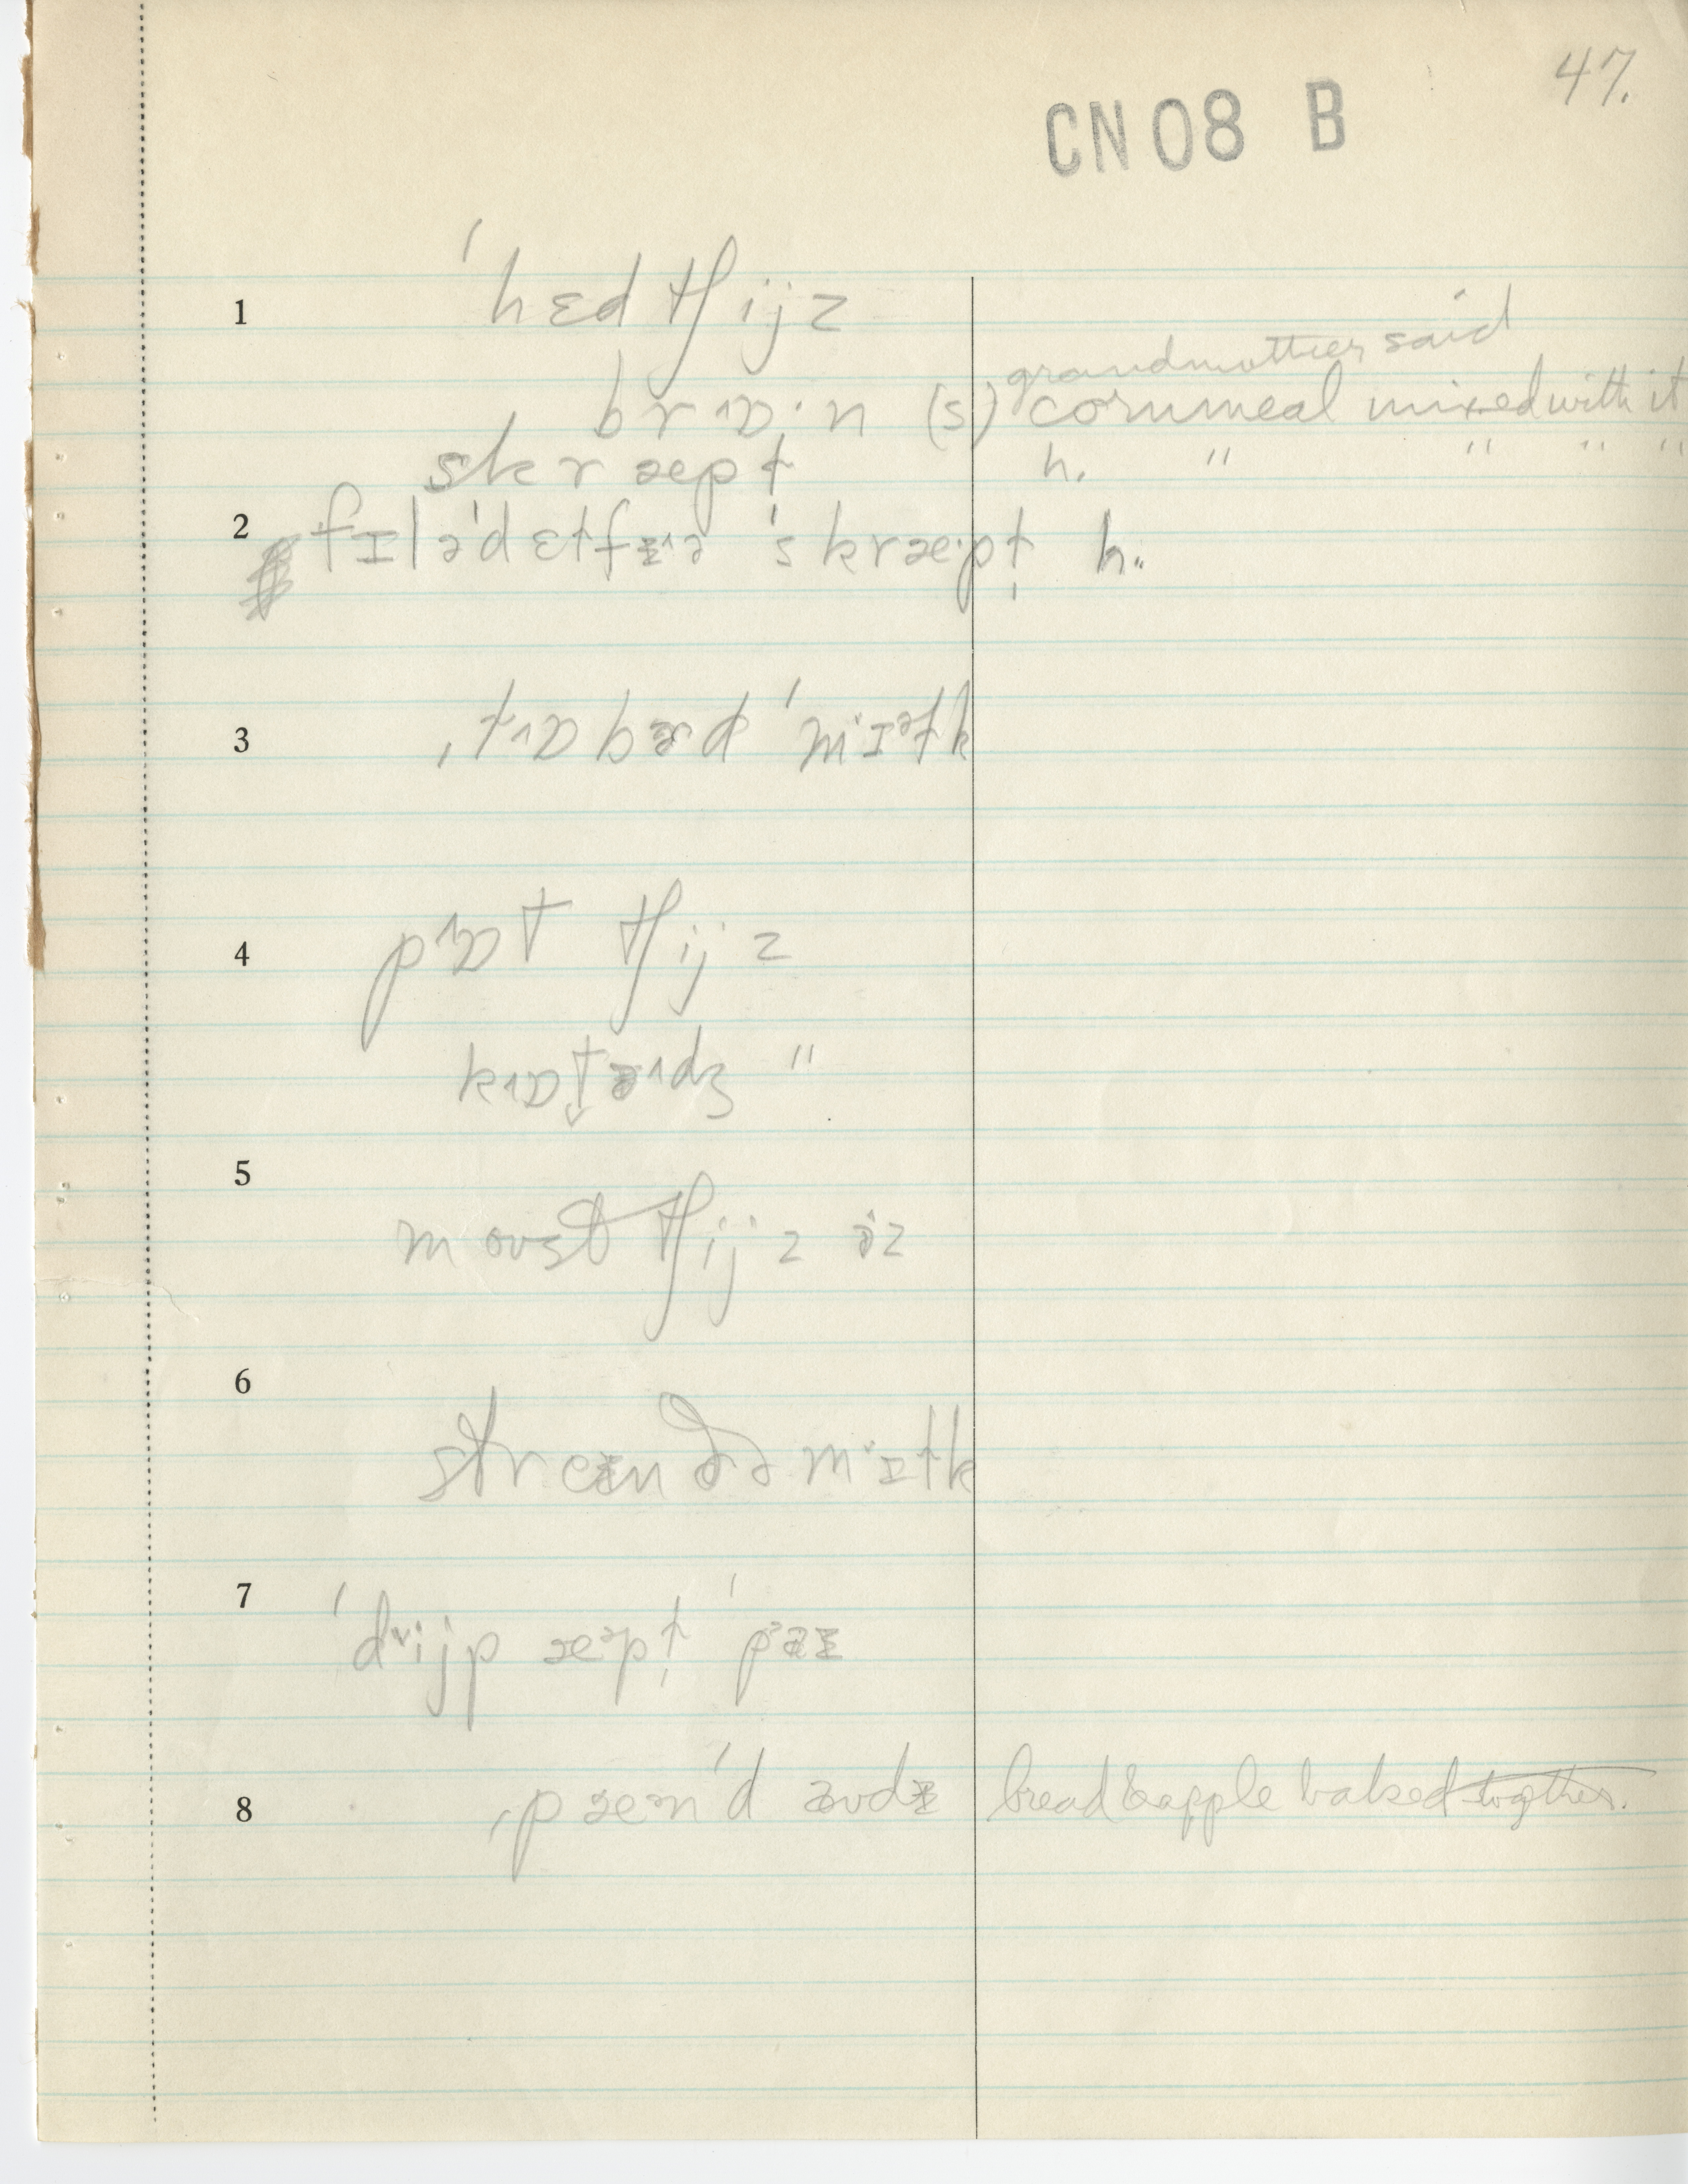 47.
CN 08 B
1 ˈhɛd tʃijz
grandmother said
brɒ·n (s) cornmeal mixed with it
skræpɫ h. " " " "
2 fɪləˈdɛɫfɪə ˈskræpɫ̩ h.
3 ˌklɒbəd ˈmɪəɫk
4 pɒt tʃijz
kɒtɪdʒ "
5 moust tʃijz ɪz
6 streɪn ðə mɪɫk
7 ˈdijp æpɫ̩ ˈpaɪ
8 ˌpænˈdaudɪ bread & apple baked together.